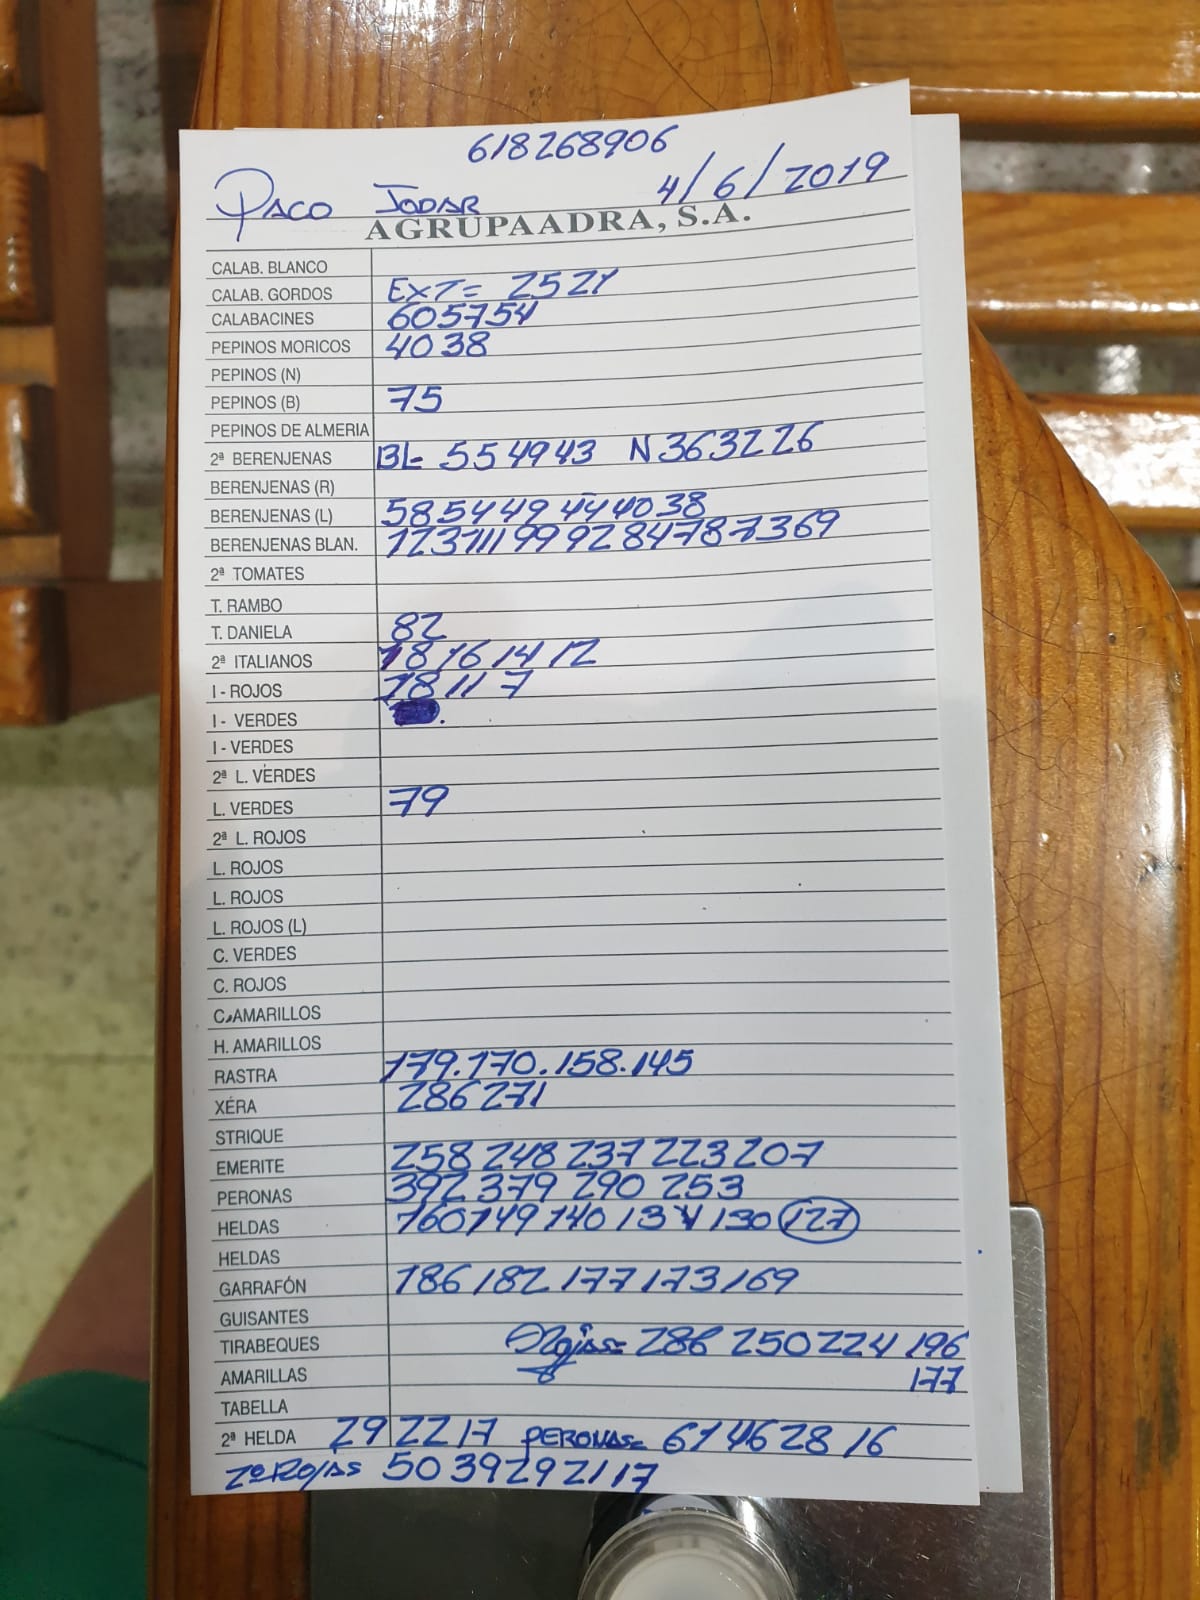 618268906
PACO JODAR 4/6/2019
AGRUPAADRA, S.A.
CALAB. BLANCO
CALAB. GORDOS EXT= 25 21
CALABACINES 60 57 54
PEPINOS MORICOS 40 38
PEPINOS (N)
PEPINOS (B) 75
PEPINOS DE ALMERIA
2ª BERENJENAS BL- 55 49 43 N 36 32 26
BERENJENAS (R)
BERENJENAS (L) 58 54 49 44 40 38
BERENJENAS BLAN. 123 111 99 92 84 78 73 69
2ª TOMATES
T. RAMBO
T. DANIELA 82
2ª ITALIANOS 18 16 14 12
I - ROJOS 18 11 7
I - VERDES
I - VERDES
2ª L. VERDES
L. VERDES 79
2ª L. ROJOS
L. ROJOS
L. ROJOS
L. ROJOS (L)
C. VERDES
C. ROJOS
C. AMARILLOS
H. AMARILLOS
RASTRA 179.170.158.145
XÉRA 286 271
STRIQUE
EMERITE 258 248 237 223 207
PERONAS 392 379 290 253
HELDAS 160 149 140 134 130 127
HELDAS
GARRAFÓN 186 182 177 173 169
GUISANTES
TIRABEQUES Rojas= 286 250 224 196
AMARILLAS 177
TABELLA
2ª HELDA 29 22 17 PERONAS= 61 46 28 16
2ª ROJAS 50 39 29 21 17